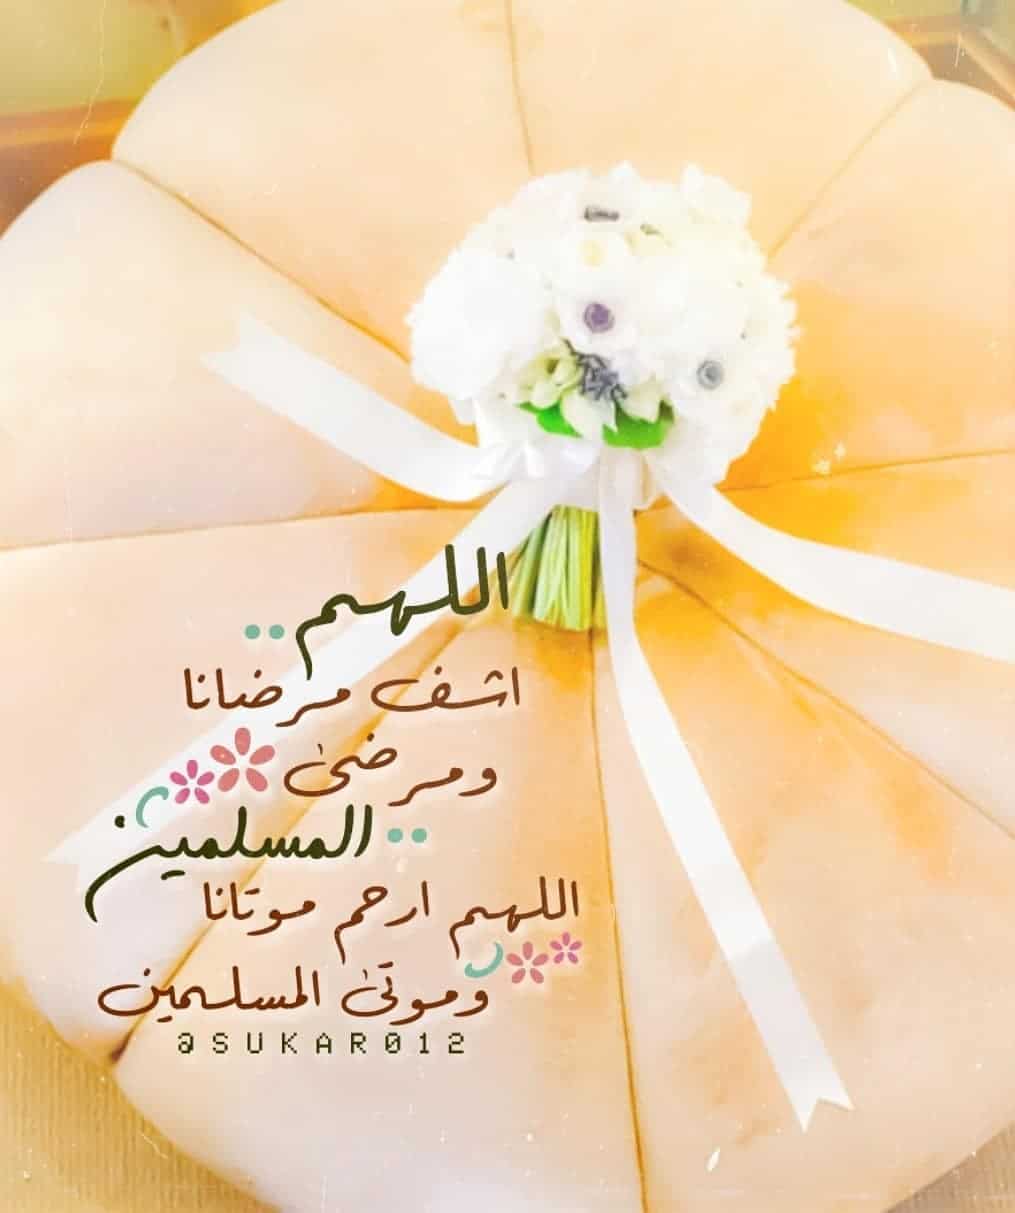 اللهم ..
اشف مرضانا
ومرضىٰ
المسلمين ..
اللهم ارحم موتانا
وموتىٰ المسلمين
@SUKAR012